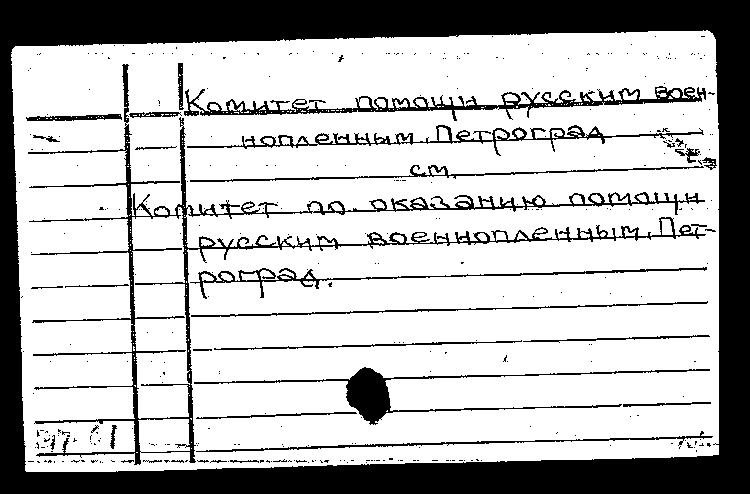 Комитет помощи русским воен-
нопленным. Петроград
см.
Комитет по оказанию помощи
русским военнопленным. Пет-
роград.